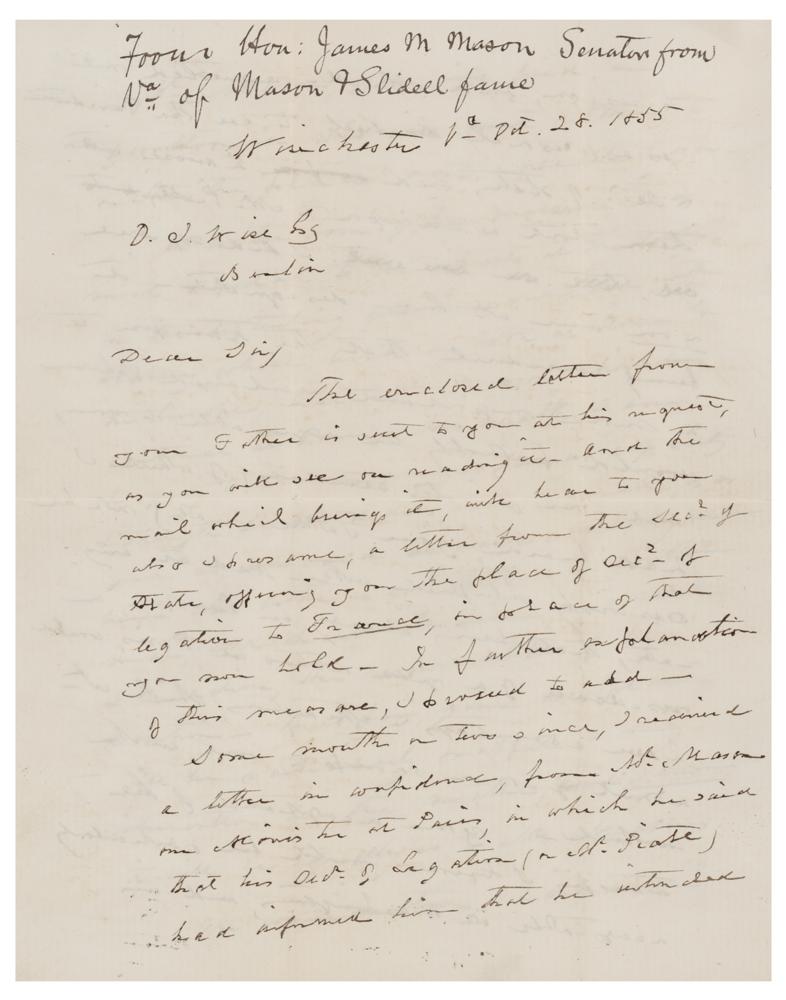 From Hon: James M Mason Senator from
Va of Mason & Slidell fame
Winchester Va Oct. 28. 1855
Wise Esq
Berlin
Dear Sir,
The enclosed letter from
your Father is sent to you at his request,
as you will see on reading it - And the
mail which brings it, will bear to you
also I presume, a letter from the Secy of
State, offering you the place of Secy of
legation to France, in place of that
you now hold - In further explanation
of this measure, I proceed to add -
Some month or two since, I received
a letter in confidence, from Mr. Mason
our Minister at Paris, in which he said
that his Secy of Legation (a Mr. Piatt)
had informed him that he intended